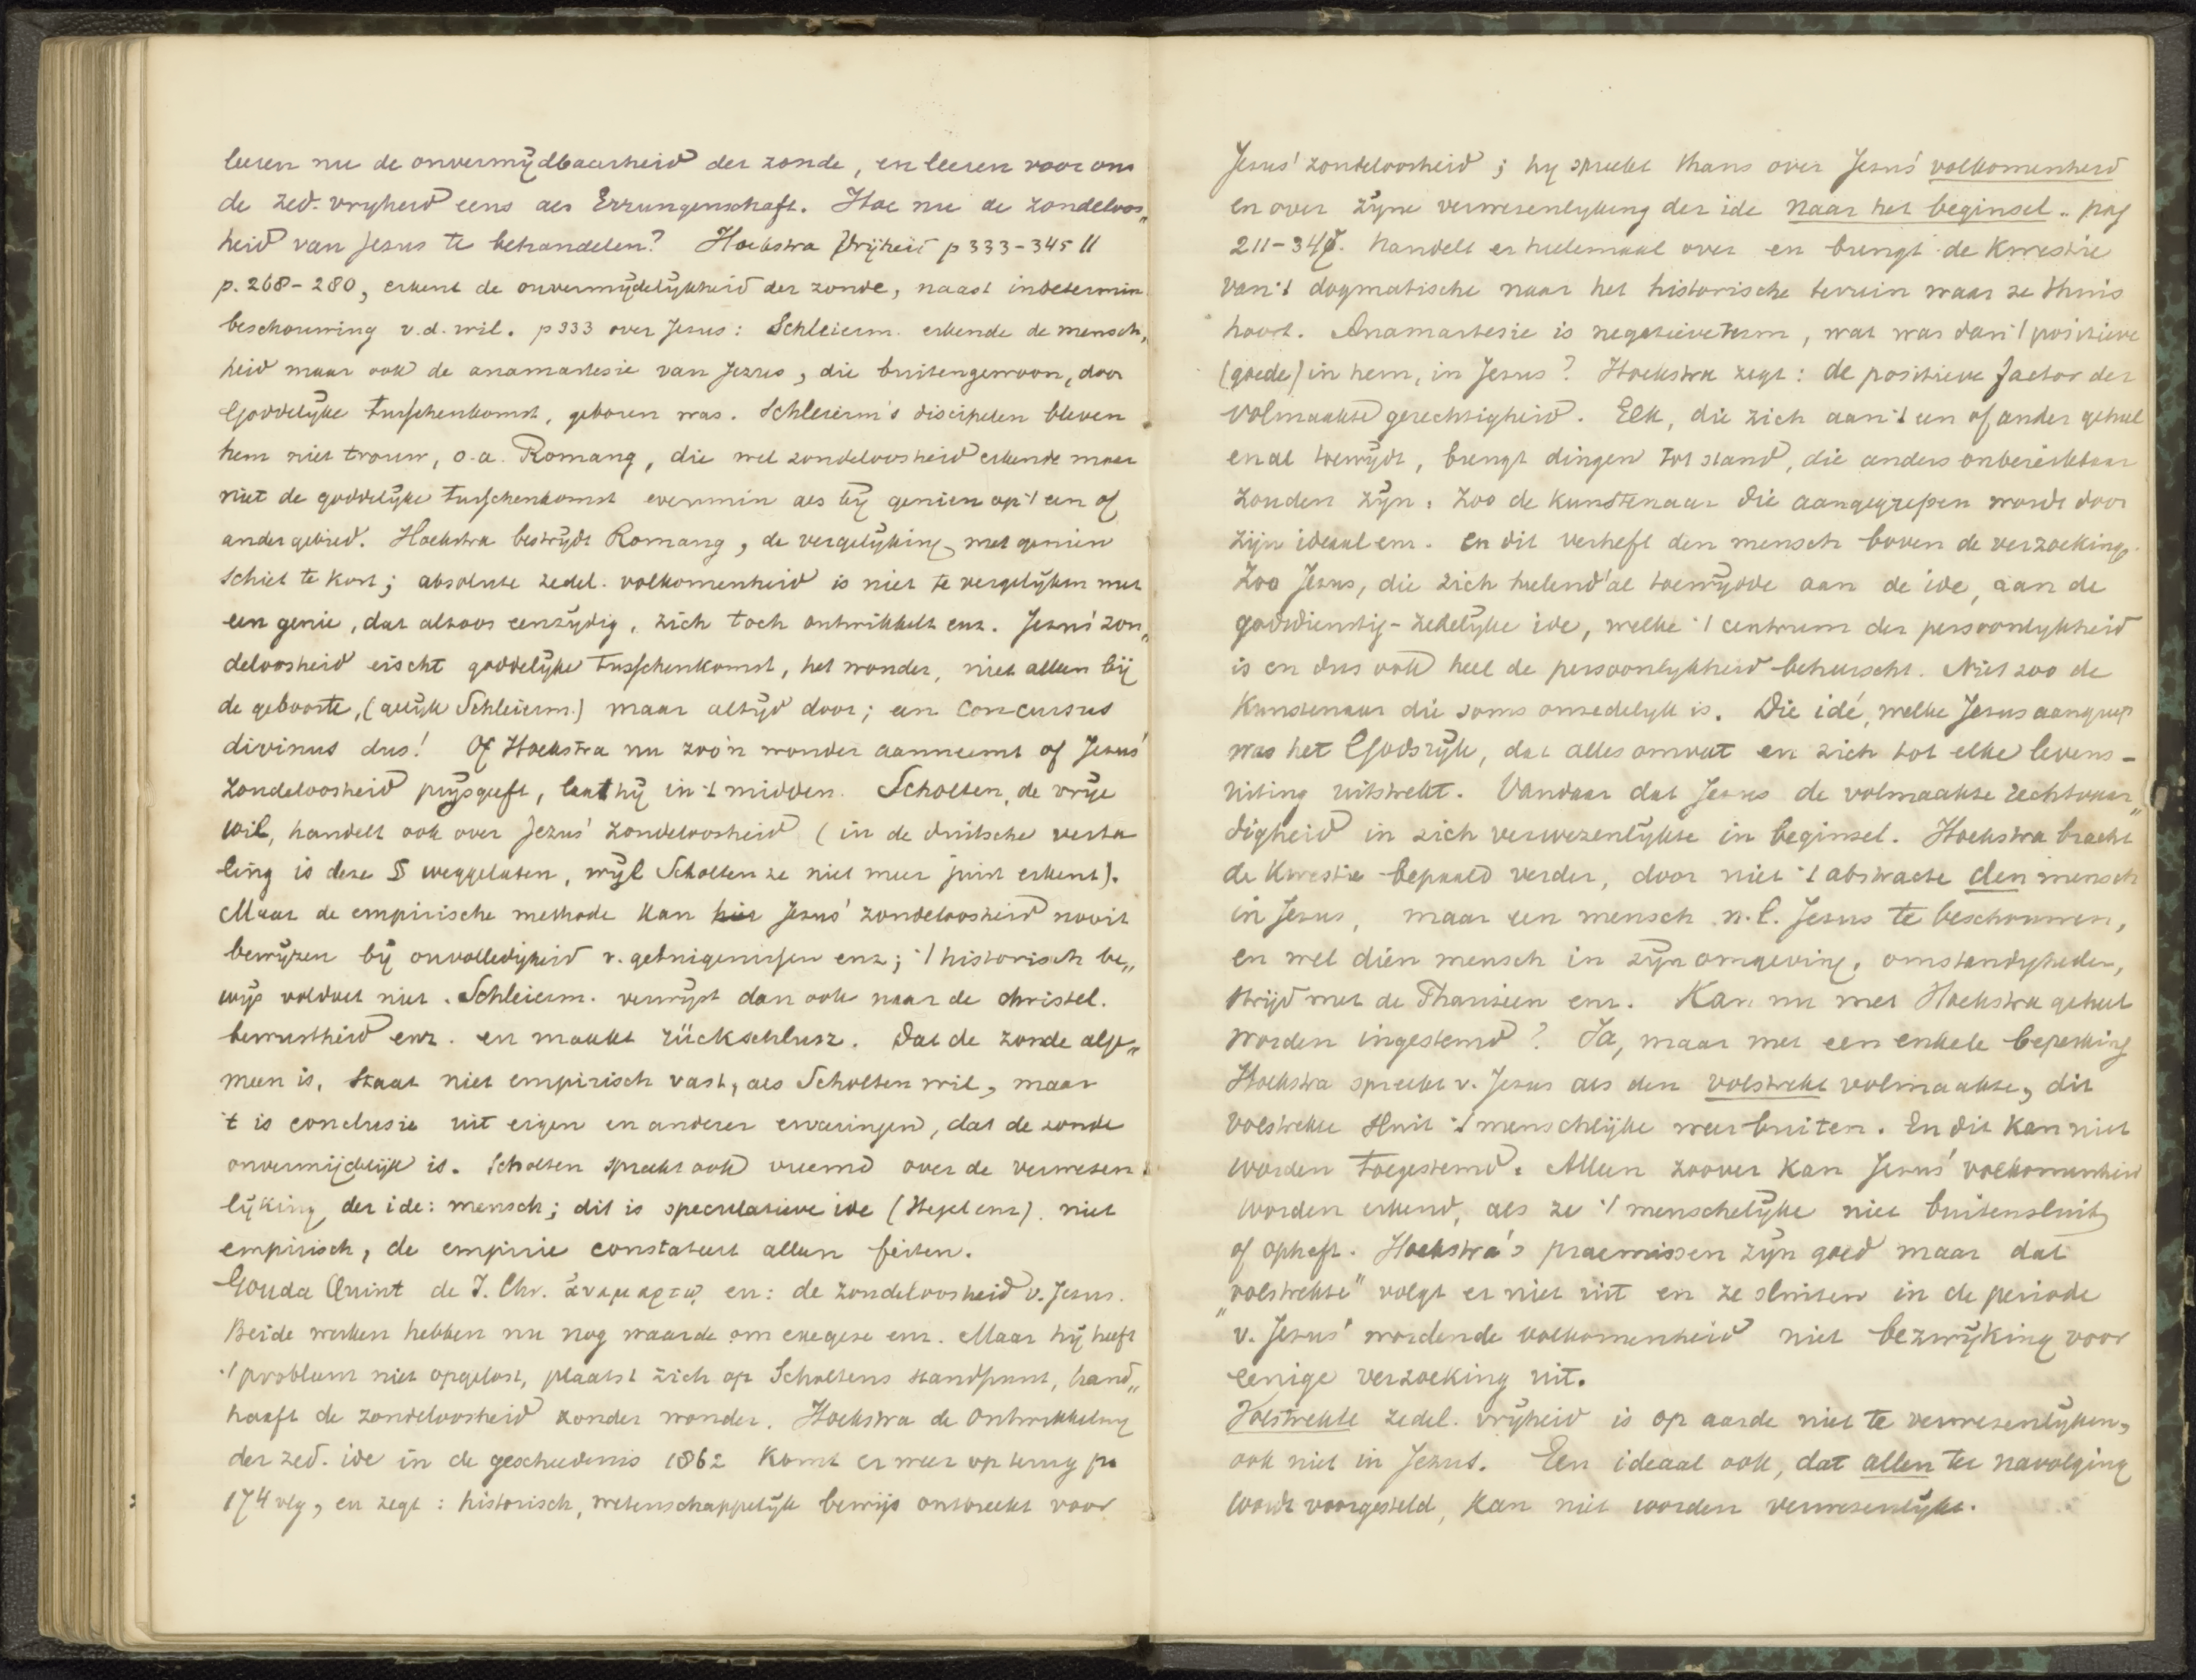 leeren nu de onvermydbaarheid der zonde, en leeren voor ons
de zed. vryheid eens als Errungenschaft. Hoe nu de zondeloos„
heid van Jesus te behandelen? Hoekstra Vrijheid p 333-345 II
p. 268-280, erkent de onvermydelykheid der zonde, naast indetermin
beschouwing v.d. wil. p 333 over Jesus: Schleierm. erkende de mensch„
heid maar ook de anamartesie van Jezus, die buitengewoon, door
Goddelyke tusschenkomst, geboren was. Schleierm's discipelen bleven
hem niet trouw, o.a. Romang, die wel zondeloosheid erkende maar
niet de goddelyke tusschenkomst evenmin als by genien op 't een of
ander gebied. Hoekstra bestrydt Romang, de vergelyking met genien
schiet te kort; absolute zedel. volkomenheid is niet te vergelyken met
een genie, dat altoos eenzydig, zich toch ontwikkelt enz. Jezus' zon„
deloosheid eischt goddelyke tusschenkomst, het wonder, niet alleen bij
de geboorte, (gelyk Schleierm.) maar altyd door; een concursus
divinus dus! Of Hoekstra nu zoo'n wonder aanneemt of Jesus'
zondeloosheid prysgeeft, laat hy in 't midden. Scholten, de vrye
wil, handelt ook over Jezus' zondeloosheid (in de duitsche verta
ling is deze § weggelaten, wyl Scholten ze niet meer juist erkent).
Maar de empirische methode kan hier Jesus' zondeloosheid nooit
bewyzen by onvolledigheid v. getuigenissen enz; 't historisch be„
wys voldoet niet. Schleierm. verwyst dan ook naar de christel.
bewustheid enz. en maakt rückschlusz. Dat de zonde alge„
meen is, staat niet empirisch vast, als Scholten wil, maar
't is conclusie uit eigen en anderer ervaringen, dat de zonde
onvermijdelijk is. Scholten spreekt ook vreemd over de verwesen
lijking der ide: mensch; dit is speculatieve ide (Hegel enz). niet
empirisch, de empirie constateert alleen feiten.
Gouda Quint de J. Chr. ἀναμαρτῳ en: de zondeloosheid v. Jesus.
Beide werken hebben nu nog waarde om exegese enz. Maar hy heeft
't probleem niet opgelost, plaatst zich op Scholtens standpunt, hand„
haaft de zondeloosheid zonder wonder. Hoekstra de ontwikkeling
der zed. ide in de geschiedenis 1862 komt er weer op terug pa
174 vlg, en zegt: historisch, wetenschappelijk bewijs ontbreekt voor
Jesus' zondeloosheid; hy spreekt thans over Jesus' volkomenheid
en over zyne verwesenlyking der ide naar het beginsel. pag
211-34 . handelt er heelemaal over en brengt de kwestie
van 't dogmatische naar het historische terrein waar ze thuis
hoort. Anamartesie is negatieve term, wat was dan 't positieve
(goede) in hem, in Jesus? Hoekstra zegt: de positieve factor der
volmaakte gerechtigheid. Elk, die zich aan 't een of ander geheel
en al toewydt, brengt dingen tot stand, die anders onbereikbaar
zouden zyn. Zoo de kunstenaar die aangegrepen wordt door
zijn ideaal enz. en dit verheft den mensch boven de verzoeking.
Zoo Jesus, die zich heelend'al toewydde aan de ide, aan de
godsdienstig-zedelyke ide, welke 't centrum der persoonlykheid
is en dus ook heel de persoonlykheid beheerscht. Niet zoo de
Kunstenaar die soms onzedelyk is. Die idé, welke Jesus aangreep
was het Godsryk, dat alles omvat en zich tot elke levens-
uiting uitstrekt. Vandaar dat Jesus de volmaakte rechtvaar„
digheid in zich verwezenlykte in beginsel. Hoekstra bracht
de kwestie bepaald verder, door niet 't abstracte den mensch
in Jesus, maar een mensch n.l. Jesus te beschouwen,
en wel dien mensch in zyn omgeving, omstandigheden,
strijd met de Phariseen enz. Kan nu met Hoekstra geheel
worden ingestemd? Ja, maar met een enkele beperking
Hoekstra spreekt v. Jesus als den volstrekt volmaakte, dit
volstrekte sluit 't menschlijke weer buiten. En dit kan niet
worden toegestemd. Alleen zoover kan Jesus' volkomenheid
worden erkend, als ze 't menschelyke niet buitensluit
of opheft. Hoekstra's praemissen zyn goed maar dat
„volstrekte" volgt er niet uit en ze sluiten in de periode
v. Jesus' wordende volkomenheid niet bezwyking voor
eenige verzoeking uit.
Volstrekte zedel. vryheid is op aarde niet te verwesenlyken,
ook niet in Jezus. Een ideaal ook, dat allen ter navolging
wordt voorgesteld, kan niet worden verwesenlykt.